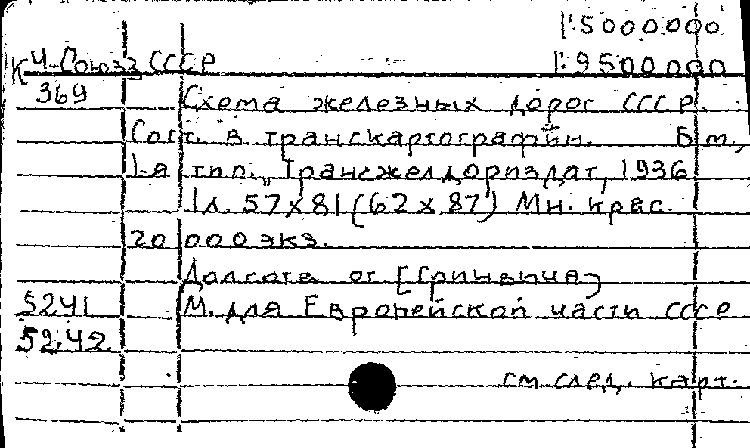 1:5000000
К 4-Союз СССР 1:9500000
369 Схема железных дорог СССР.
Сост. в транскартографии. Б.м.,
1-я тип. „Трансжелдориздат, 1936
1л. 57х81 (62х87) Мн. крас.
20 000 экз.
Долгота от [Гринвича]
5241 М. для Европейской части СССР
5242
см. след. карт.